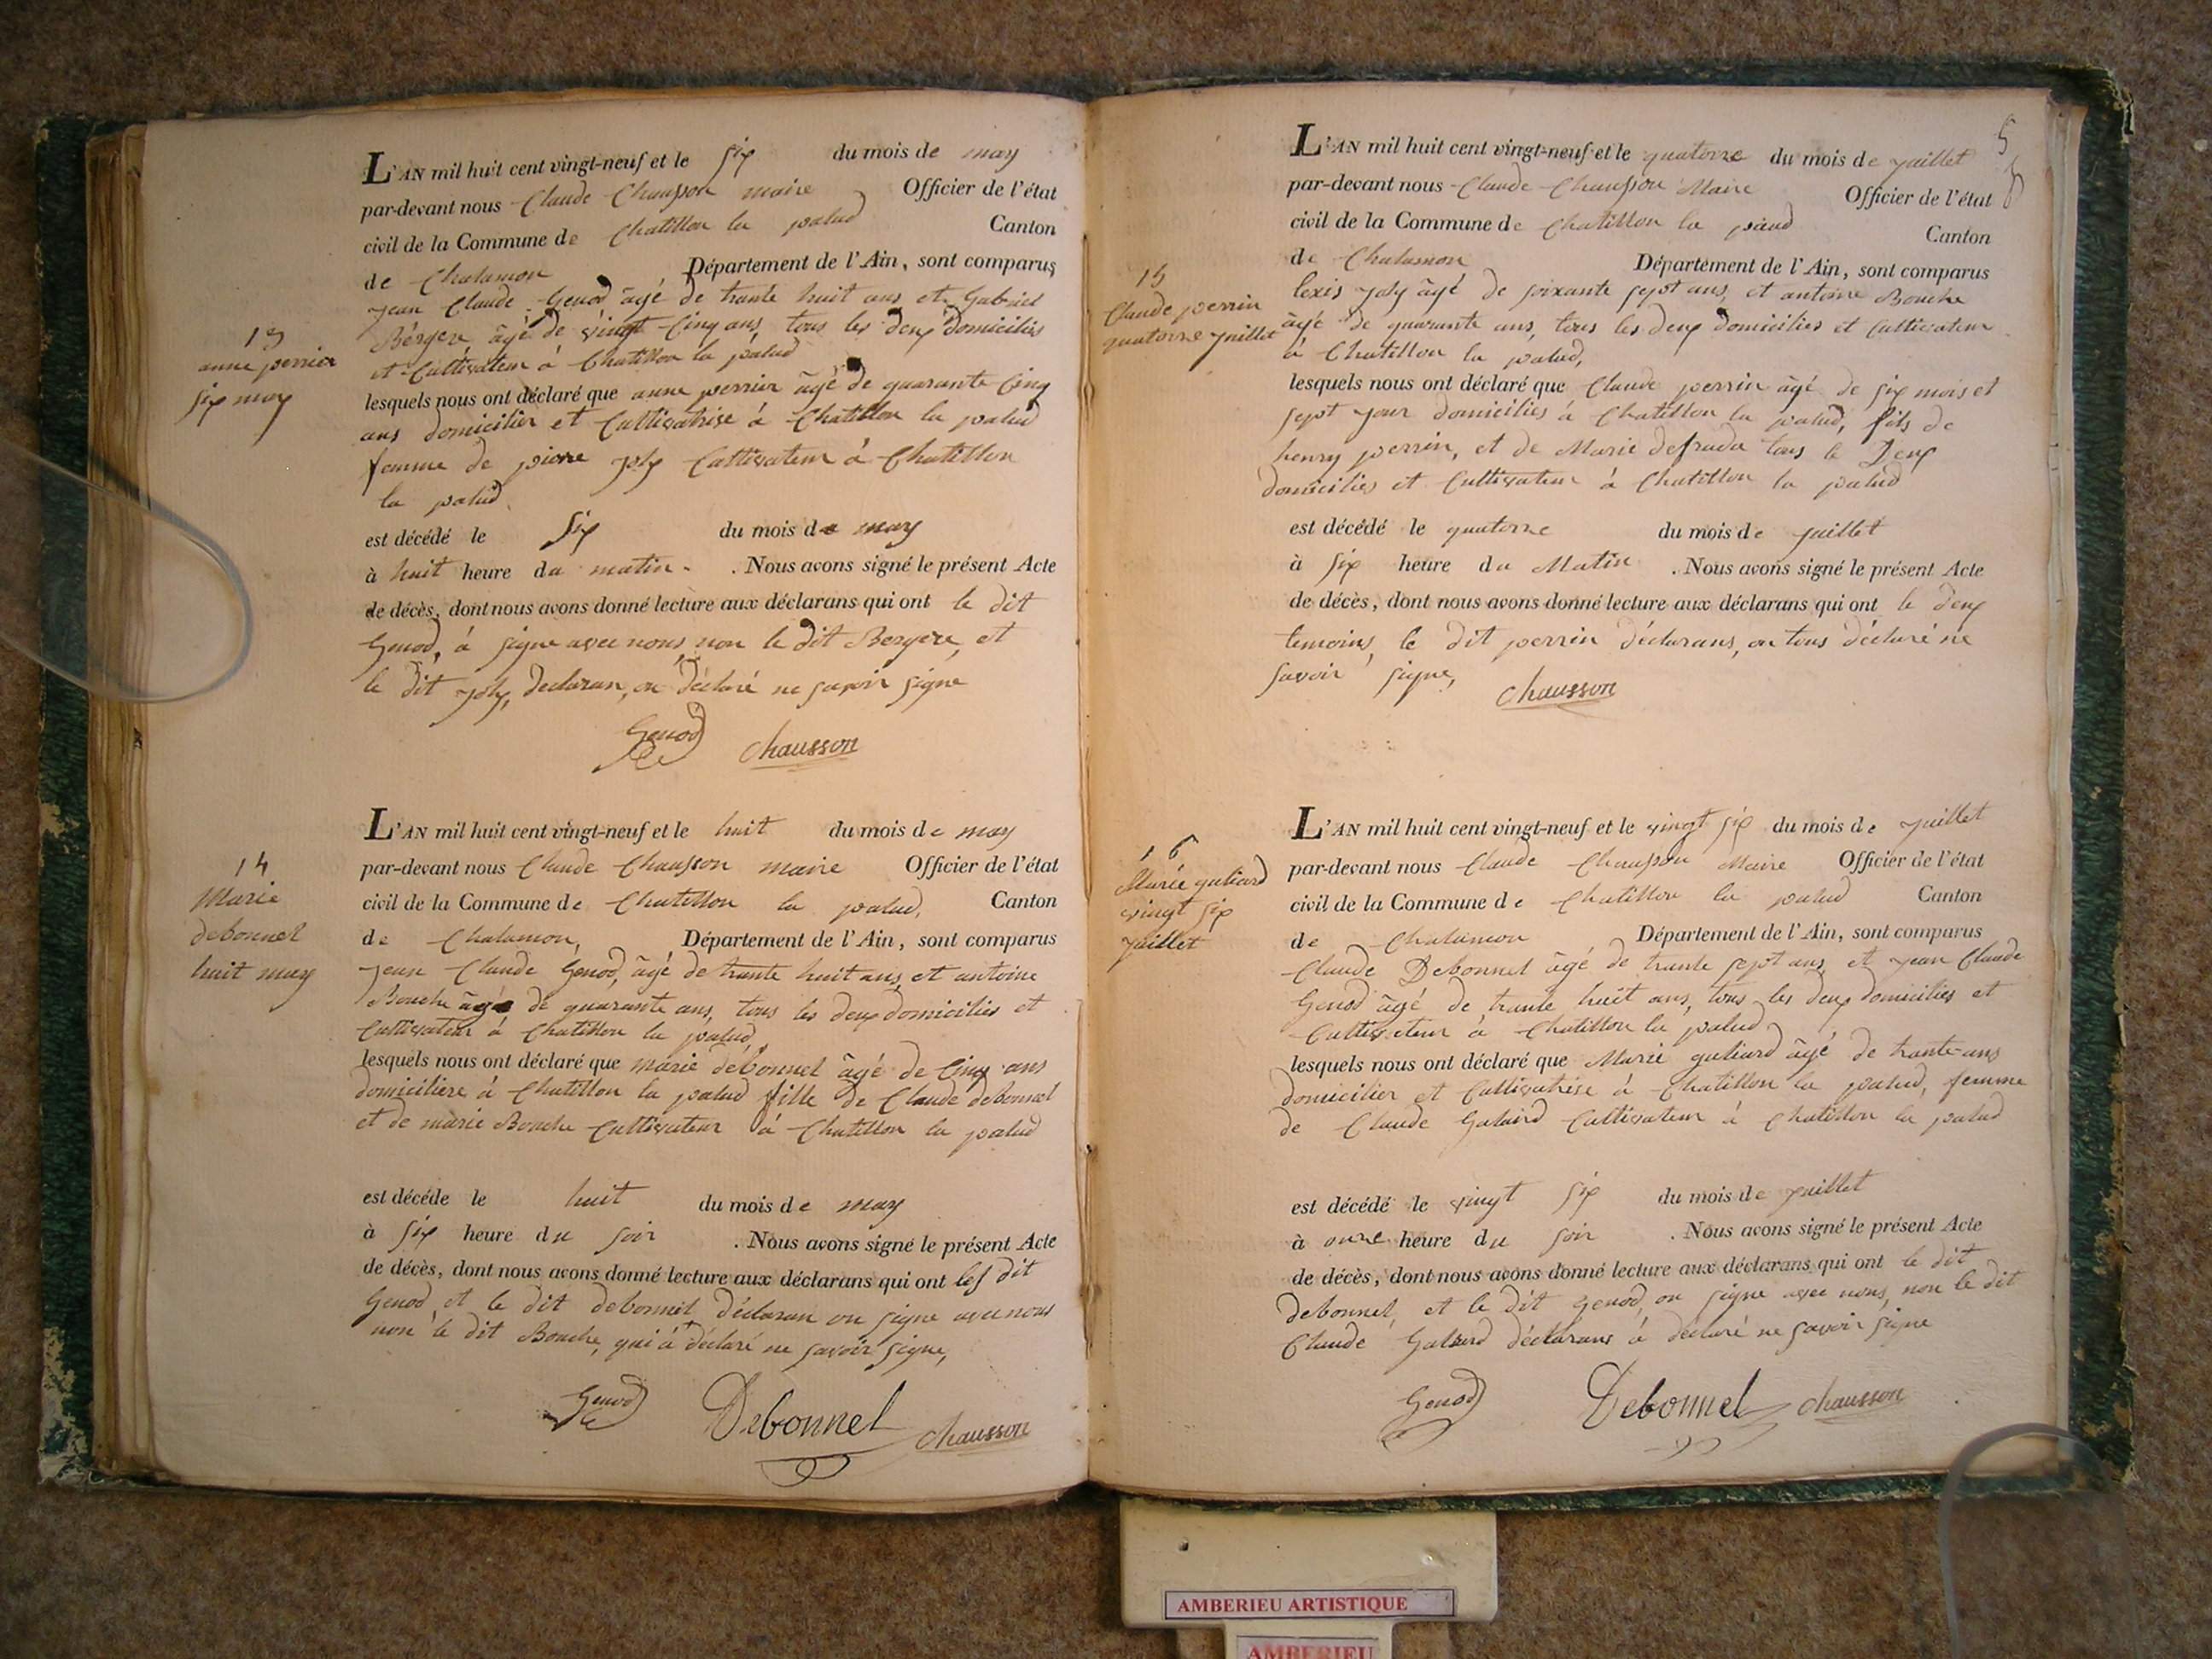 13
anne perrier
six may
L'AN mil huit cent vingt-neuf et le six du mois de may
par-devant nous Claude Chausson maire Officier de l'état
civil de la Commune de Chatillon la palud Canton
de Chalamon Département de l'Ain, sont comparus
jean Claude Genod âgé de trante huit ans et Gabriel
Bérgere âgé de vingt Cinq ans, tous les deux domiciliés
et Cultivateur à Chatillon la palud
lesquels nous ont déclaré que anne perrier âgé de quarante Cinq
ans domicilier et Cultivatrise à Chatillon la palud
femme de pierre joly Cultivateur à Chatillon
la palud
est décédé le six du mois de may
à huit heure du matin . Nous avons signé le présent Acte
de décès, dont nous avons donné lecture aux déclarans qui ont le dit
Genod, à signe avec nous non le dit Bergere, et
le dit joly, declaran, on déclaré ne savoir signe
Genod Chausson
14
Marie
debonnel
huit may
L'AN mil huit cent vingt-neuf et le huit du mois de may
par-devant nous Claude Chausson maire Officier de l'état
civil de la Commune de Chatillon la palud, Canton
de Chalamon, Département de l'Ain, sont comparus
jean Claude Genod, âgé de trante huit ans, et antoine
Bouche âgé de quarante ans, tous les deux domiciliés et
Cultivateur à Chatillon la palud,
lesquels nous ont déclaré que marie debonnel âgé de Cinq ans
domiciliere à Chatillon la palud fille de Claude debonnel
et de marie Bouche Cultivateur à Chatillon la palud
est décédé le huit du mois de may
à six heure du soir . Nous avons signé le présent Acte
de décès, dont nous avons donné lecture aux déclarans qui ont les dit
Genod, et le dit debonnel déclaran on signe avec nous
non le dit Bouche, qui à déclaré ne savoir signe,
Genod Debonnel Chausson
5
15
Claude perrin
quatorze juillet
L'AN mil huit cent vingt-neuf et le quatorze du mois de juillet
par-devant nous Claude Chausson Maire Officier de l'état
civil de la Commune de Chatillon la palud Canton
de Chalamon Département de l'Ain, sont comparus
lexis joly âgé de soixante sept ans, et antoine Bouche
âgé de quarante ans, tous les deux domiciliés et Cultivateur
à Chatillon la palud,
lesquels nous ont déclaré que Claude perrin âgé de six mois et
sept jour domiciliés à Chatillon la palud, fils de
henry perrin, et de Marie tous le Deux
domiciliés et Cultivateur à Chatillon la palud
est décédé le quatorze du mois de juillet
à six heure du Matin . Nous avons signé le présent Acte
de décès, dont nous avons donné lecture aux déclarans qui ont le deux
temoins, le dit perrin déclarans, on tous déclaré ne
savoir signe, Chausson
16
Marie galiard
vingt six
juillet
L'AN mil huit cent vingt-neuf et le vingt six du mois de juillet
par-devant nous Claude Chausson Maire Officier de l'état
civil de la Commune de Chatillon la palud Canton
de Chalamon Département de l'Ain, sont comparus
Claude Debonnel âgé de trante sept ans, et jean Claude
Genod âgé de trante huit ans, tous les deux domiciliés et
Cultivateur à Chatillon la palud,
lesquels nous ont déclaré que Marie galiard âgé de trante ans
domicilier et Cultivatrise à Chatillon la palud, femme
de Claude Cultivateur à Chatillon la palud
est décédé le vingt six du mois de juillet
à onze heure du soir . Nous avons signé le présent Acte
de décès, dont nous avons donné lecture aux déclarans qui ont le dit
debonnel, et le dit Genod, on signe avec nous, non le dit
Claude déclarans à déclaré ne savoir signe
Genod Debonnel Chausson
AMBERIEU ARTISTIQUE
AMBERIEU